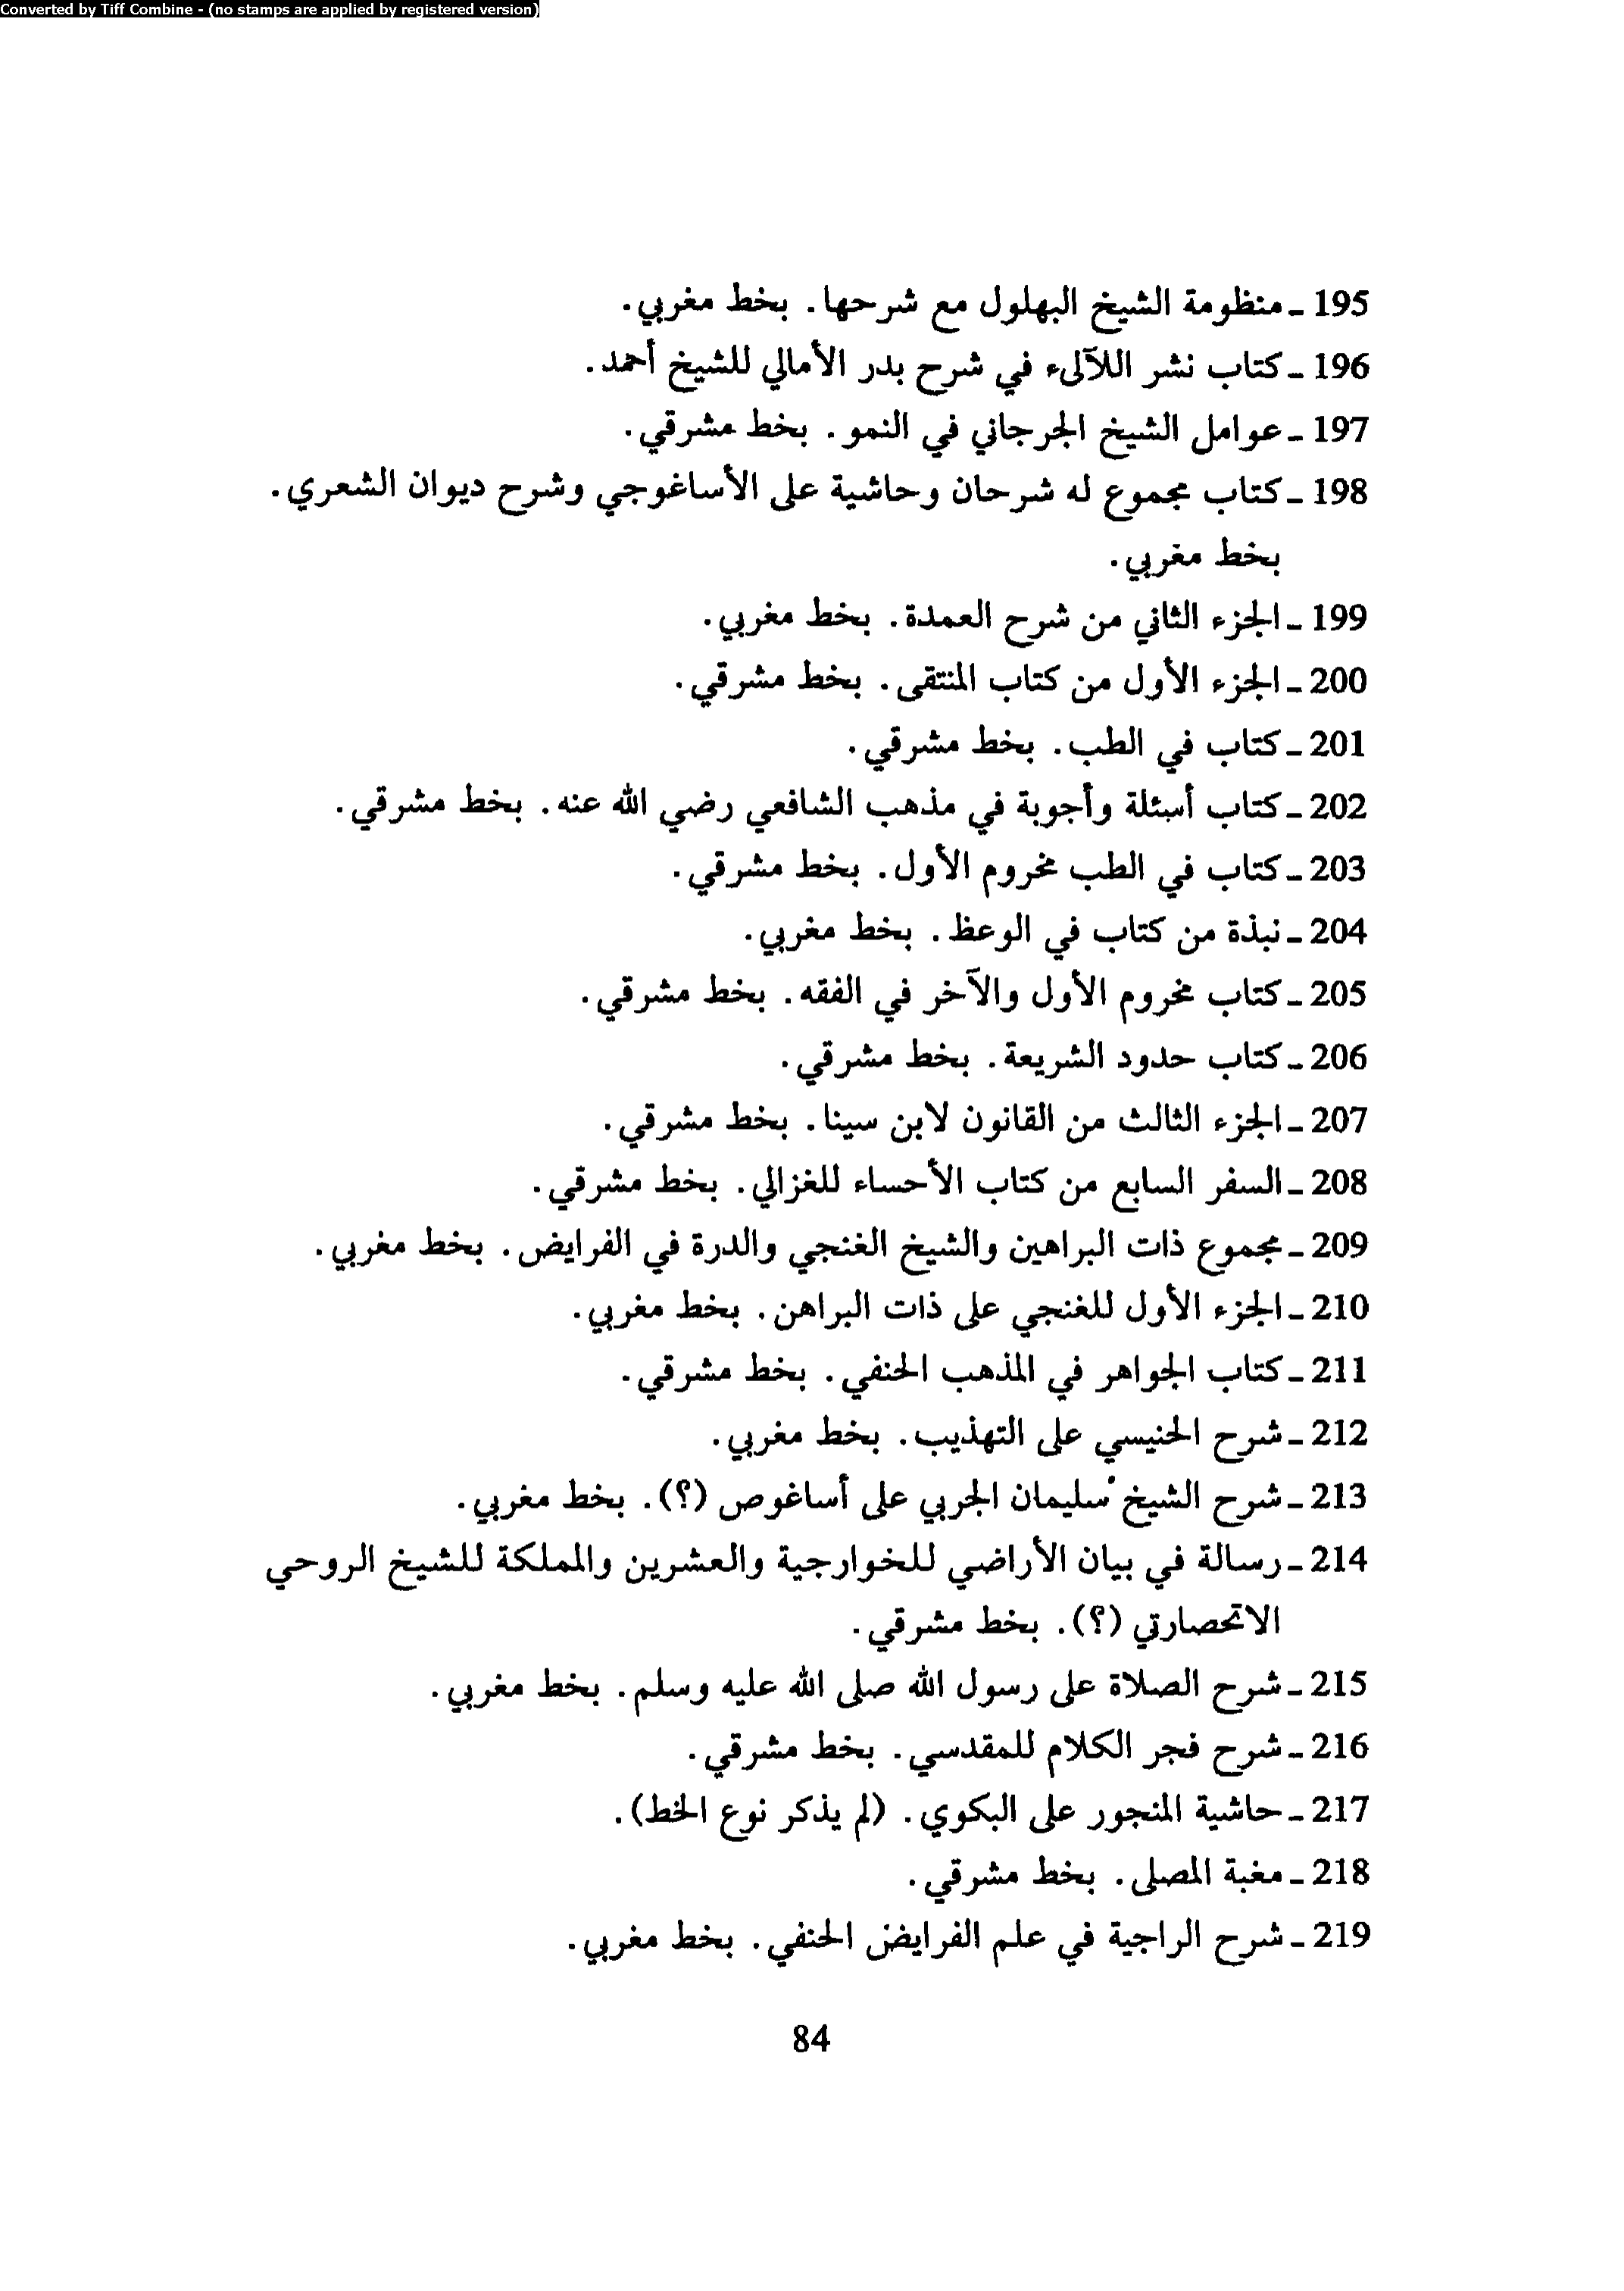 Converted by Tiff Combine - (no stamps are applied by registered version)
195 - منظومة الشيخ البهلول مع شرحها. بخط مغربي.
196 - كتاب نشر اللآلىء في شرح بدر الأمالي للشيخ أحمد.
197 - عوامل الشيخ الجرجاني في النمو. بخط مشرقي.
198 - كتاب مجموع له شرحان وحاشية على الأساغوجي وشرح ديوان الشعري.
بخط مغربي.
199 - الجزء الثاني من شرح العمدة. بخط مغربي.
200 - الجزء الأول من كتاب المنتقى. بخط مشرقي.
201 - كتاب في الطب. بخط مشرقي.
202 - كتاب أسئلة وأجوبة في مذهب الشافعي رضي الله عنه. بخط مشرقي.
203 - كتاب في الطب مخروم الأول. بخط مشرقي.
204 - نبذة من كتاب في الوعظ. بخط مغربي.
205 - كتاب مخروم الأول والآخر في الفقه. بخط مشرقي.
206 - كتاب حدود الشريعة. بخط مشرقي.
207 - الجزء الثالث من القانون لابن سينا. بخط مشرقي.
208 - السفر السابع من كتاب الأحساء للغزالي. بخط مشرقي.
209 - مجموع ذات البراهين والشيخ الغنجي والدرة في الفرايض. بخط مغربي.
210 - الجزء الأول للغنجي على ذات البراهن. بخط مغربي.
211 - كتاب الجواهر في المذهب الحنفي. بخط مشرقي.
212 - شرح الحنيسي على التهذيب. بخط مغربي.
213 - شرح الشيخ سليمان الجربي على أساغوص (؟). بخط مغربي.
214 - رسالة في بيان الأراضي للخوارجية والعشرين والمملكة للشيخ الروحي
الاتحصارتي (؟). بخط مشرقي.
215 - شرح الصلاة على رسول الله صلى الله عليه وسلم. بخط مغربي.
216 - شرح فجر الكلام للمقدسي. بخط مشرقي.
217 - حاشية المنجور على البكوي. (لم يذكر نوع الخط).
218 - مغبة المصلى. بخط مشرقي.
219 - شرح الراجية في علم الفرايض الحنفي. بخط مغربي.
84